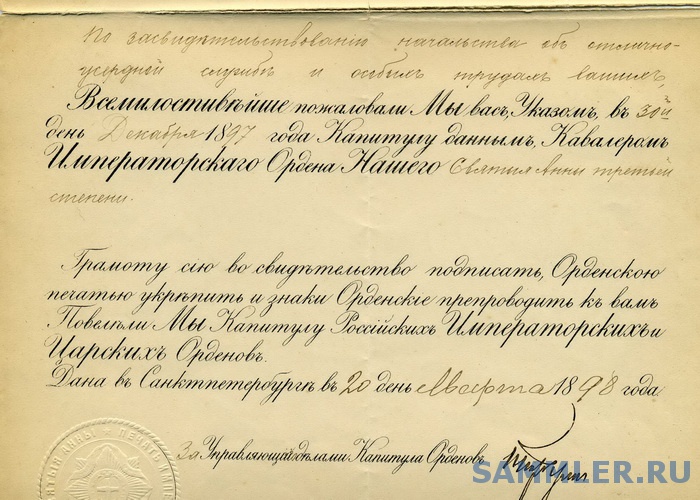 По засвидѣтельствованію начальства объ отлично-
усердной службѣ и особымъ трудамъ вашимъ,
Всемилостивѣйше пожаловали Мы васъ, Указомъ, въ 30й
день Декабря 1897 года Капитулу даннымъ, Кавалеромъ
Императорскаго Ордена Нашего Святыя Анны третьей
степени.
Грамоту сію во свидѣтельство подписать, Орденскою
печатью укрѣпить и знаки Орденскіе препроводить къ вамъ
Повелѣли Мы Капитулу Россійскихъ Императорскихъ и
Царскихъ Орденовъ.
Дана въ Санктпетербургѣ въ 20 день Марта 1898 года.
За Управляющій дѣлами Капитула Орденовъ
АНЫ * ПЕЧАТЬ ИМПЕ
SAMMLER.RU